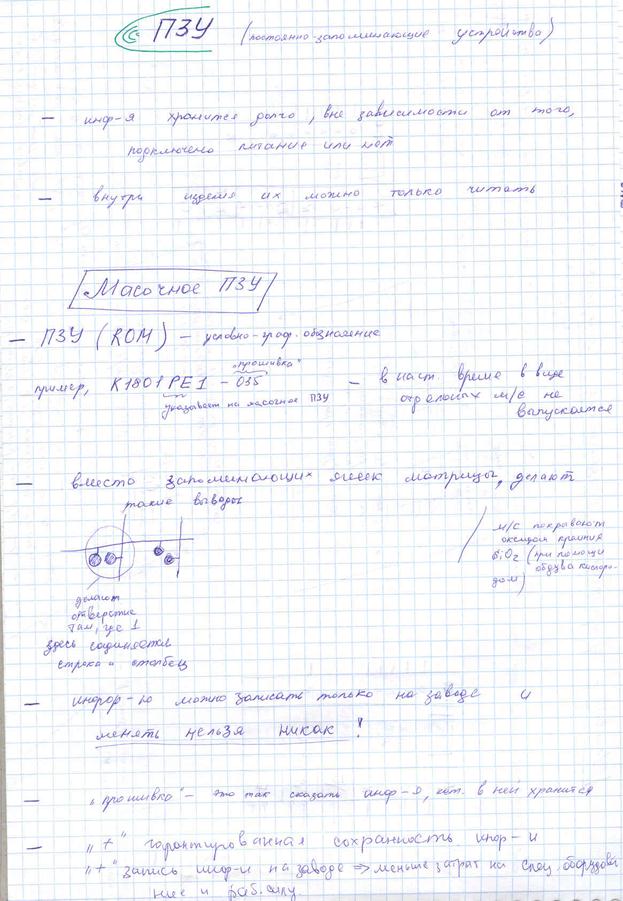 ПЗУ (постоянно-запоминающие устройства)
— инф-я хранится долго, вне зависимости от того,
подключено питание или нет
— внутри изделия их можно только читать
Масочное ПЗУ
— ПЗУ (ROM) — условно-граф. обозначение
"прошивка"
пример, К1801РЕ1 - 035 — в наст. время в виде
указывает на масочное ПЗУ
отдельных м/с не
выпускается
— вместо запоминающих ячеек матрицы, делают
такие выводы
м/с покрывают
оксидом кремния
SiO2 (при помощи
обдува кислоро-
дом)
делают
отверстие
там, где 1
здесь соединяется
строка и столбец
— инфор-ю можно записать только на заводе и
менять нельзя никак!
— "прошивка" - это так сказать инф-я, кот. в ней хранится
— "+" гарантированная сохранность инф-и
"+" запись инф-и на заводе => меньше затрат на спец. оборудова
ние и раб. силу